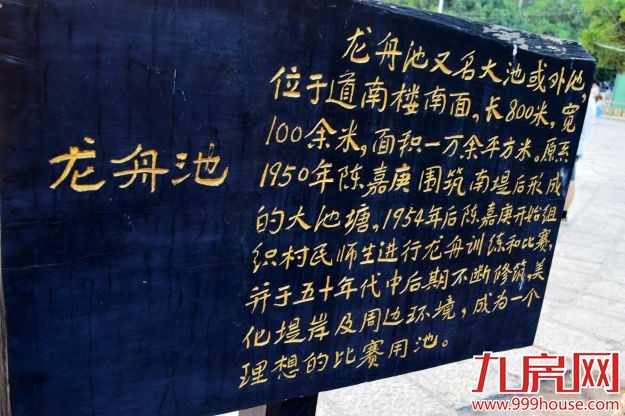 龙舟池
龙舟池又名大池或外池，
位于道南楼南面，长800米，宽
100余米，面积一万余平方米。原系
1950年陈嘉庚围筑南堤后形成
的大池塘，1954年后陈嘉庚开始组
织村民师生进行龙舟训练和比赛，
并于五十年代中后期不断修筑，美
化堤岸及周边环境，成为一个
理想的比赛用池。
九房网
www.999house.com